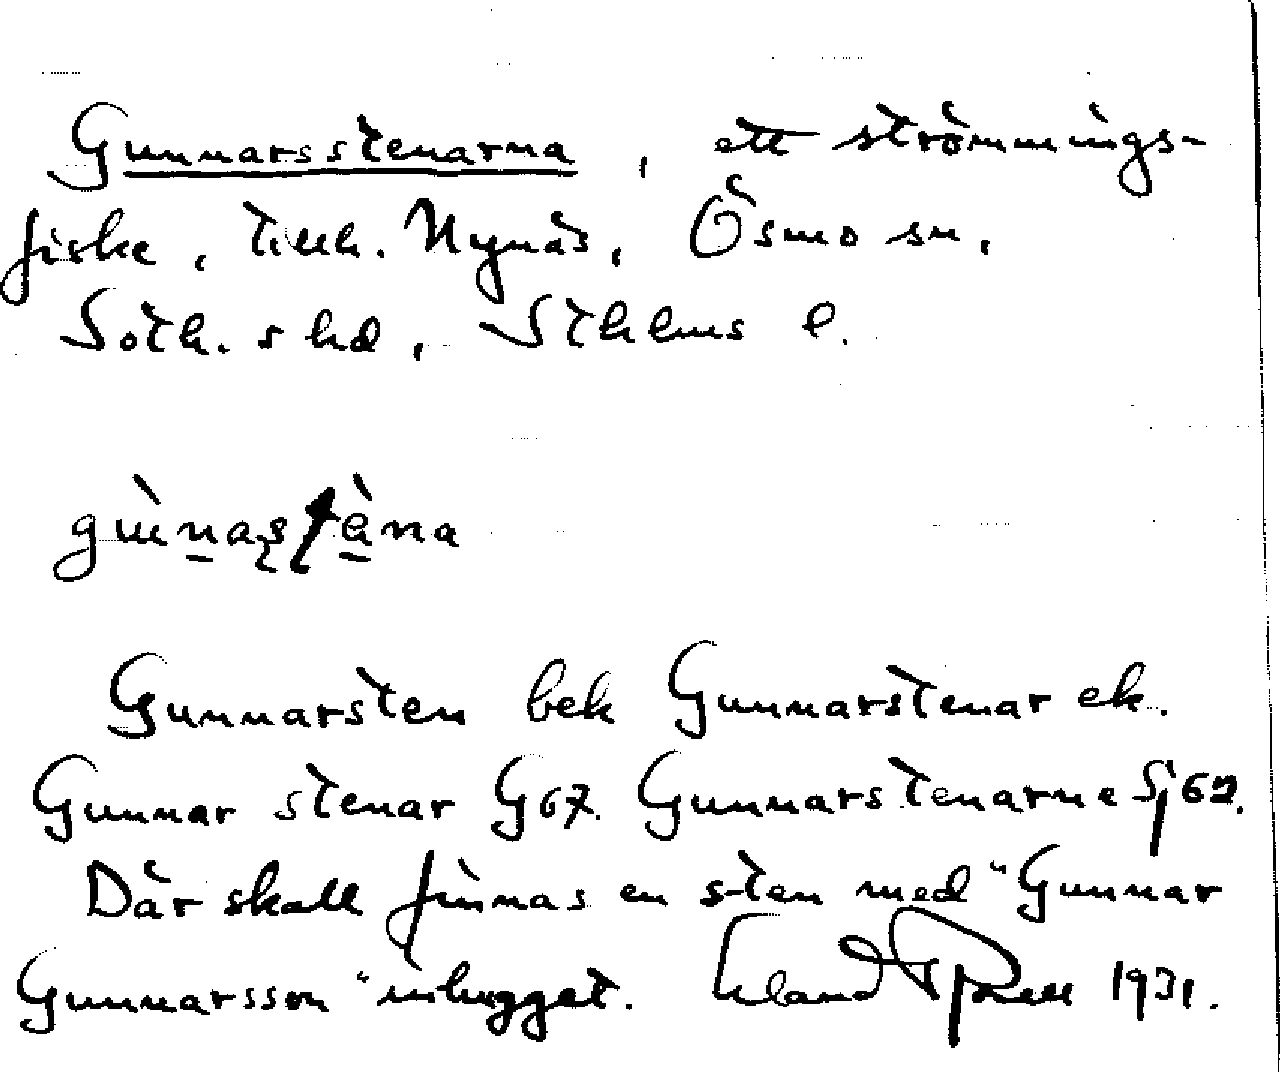 Gunnarsstenarna, ett strömmings-
fiske, tillh. Nynäs, Ösmo sn,
Soth. shd, Sthlms l.
Gunnarsten bek Gunnarstenar ek.
Gunnar stenar G67. Gunnarstenarne Sj 62.
Där skall finnas en sten med "Gunnar
Gunnarsson" inhugget. 1931.